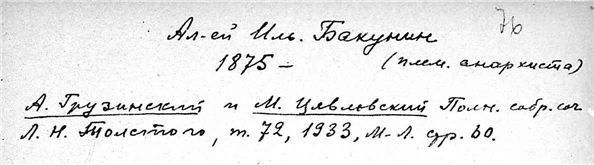 76
Ал-ей Иль. Бакунин
1875 – (плем. анархиста)
А. Грузинский и М. Цявловский Полн. собр. соч
Л. Н. Толстого, т. 72, 1933, М-Л. стр. 60.